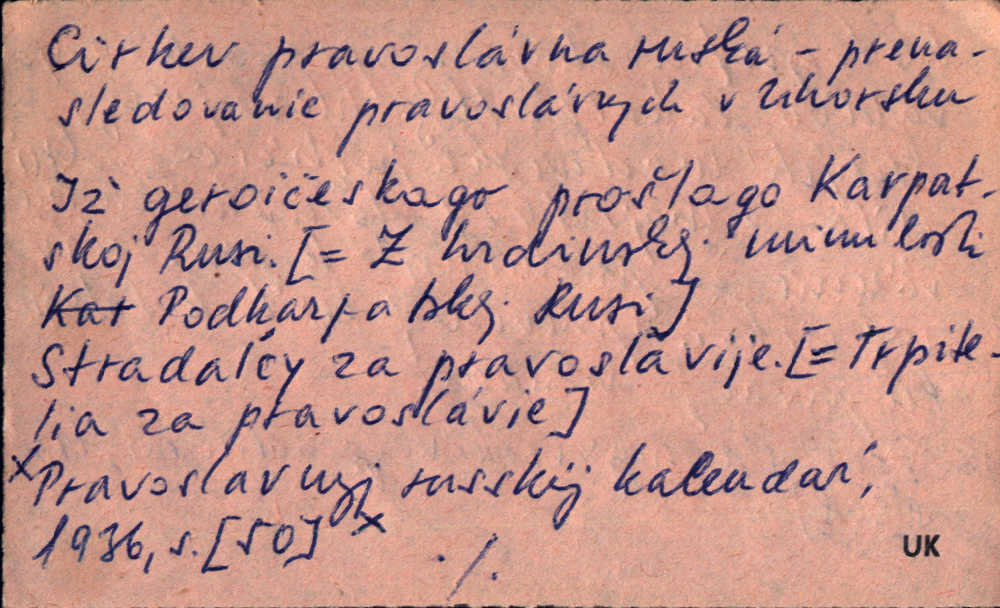 Cirkev pravoslávna ruská - prena-
sledovanie pravoslávnych v Uhorsku
Iz geroičeskago prošlago Karpat-
skoj Rusi. [= Z hrdinskej minulosti
Kar Podkarpatskej Rusi]
Stradaľcy za pravoslavije. [= Trpite-
lia za pravoslávie]
x Pravoslavnyj russkij kalendar',
1936, s. [50] x
./.
UK